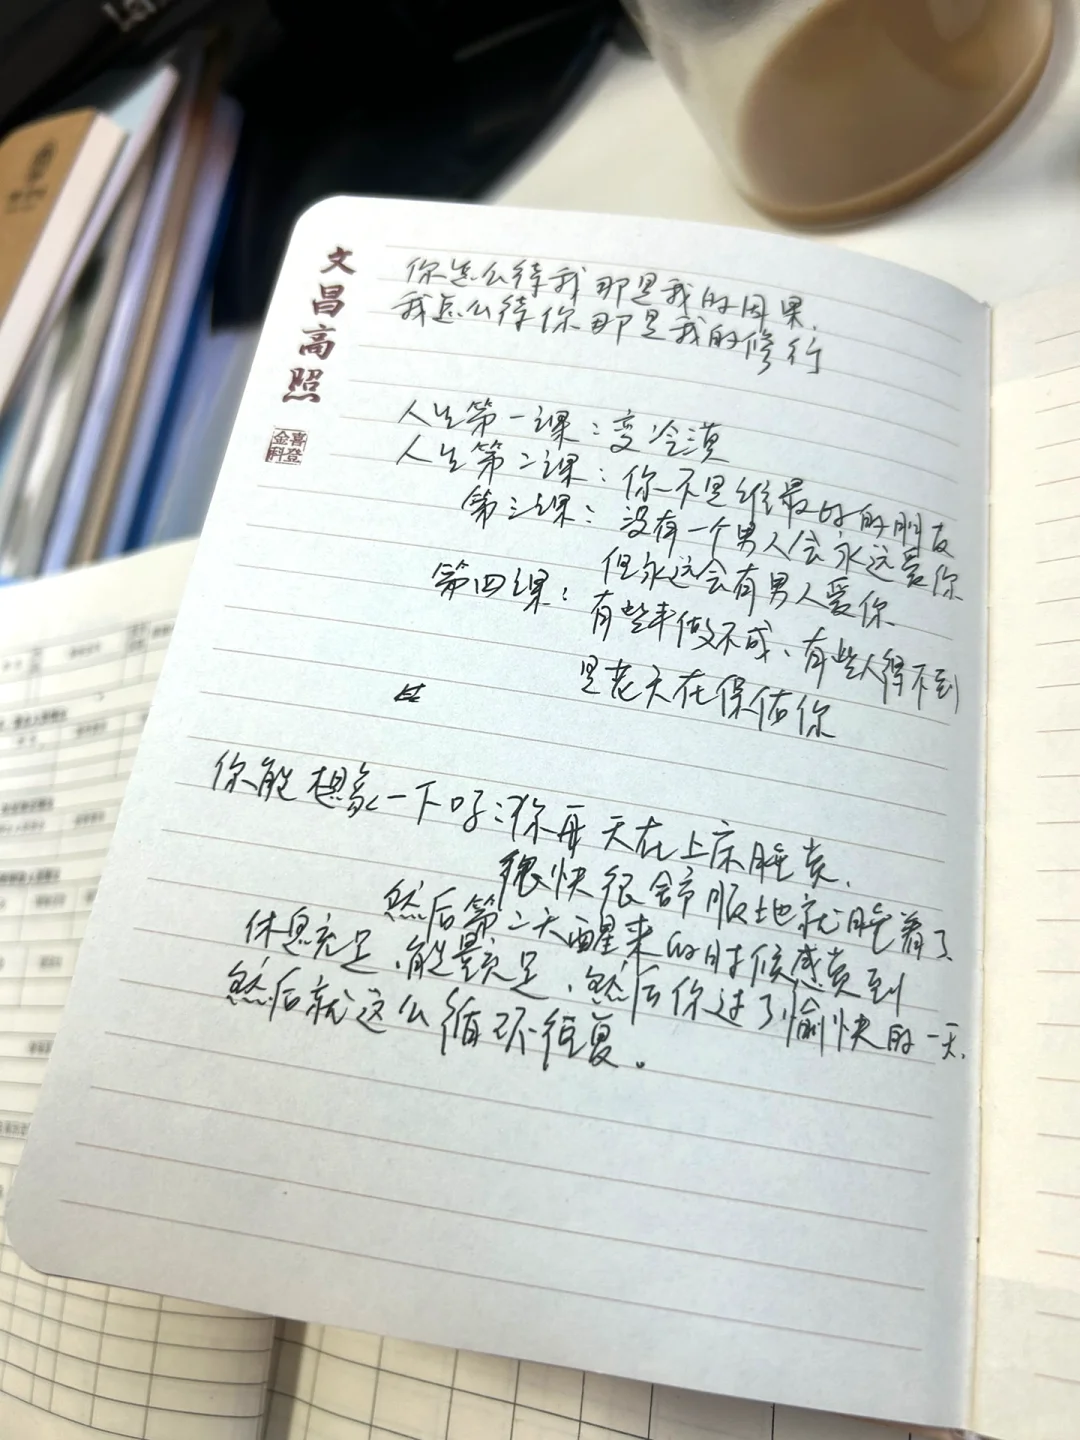 文昌高照
金喜
科登
你怎么待我那是我的因果,
我怎么待你那是我的修行
人生第一课:变冷漠
人生第二课:你不是谁最好的朋友
第三课:没有一个男人会永远爱你
但永远会有男人爱你
第四课:有些事做不成、有些人得不到
是老天在保佑你
你能想象一下吗:你每天在上床睡觉,
很快很舒服地就睡着了
然后第二天醒来的时候感觉到
休息充足,能量充足,然后你过了愉快的一天,
然后就这么循环往复。